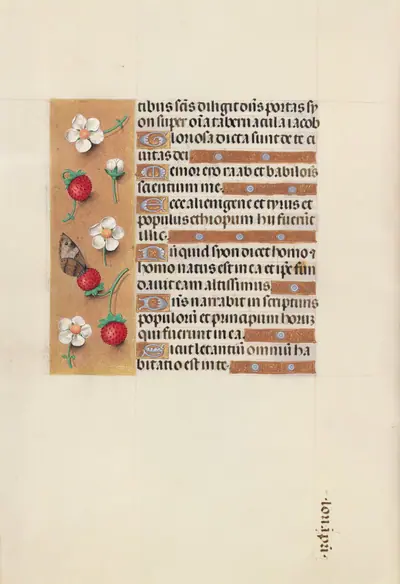 tibus scis diligit dns portas sy
on super oia tabernacula iacob
Gloriosa dicta sunt de te ci
uitas dei
Memor ero raab et babilois
scientium me
Ecce alienigene et tyrus et
populus ethiopum hii fuerunt
illic
Nunquid syon dicet homo et
homo natus est in ea et ipe fun
dauit eam altissimus
Dns narrabit in scripturis
populorum et principum horum
qui fuerunt in ea
Sicut letantium omnium ha
bitatio est in te